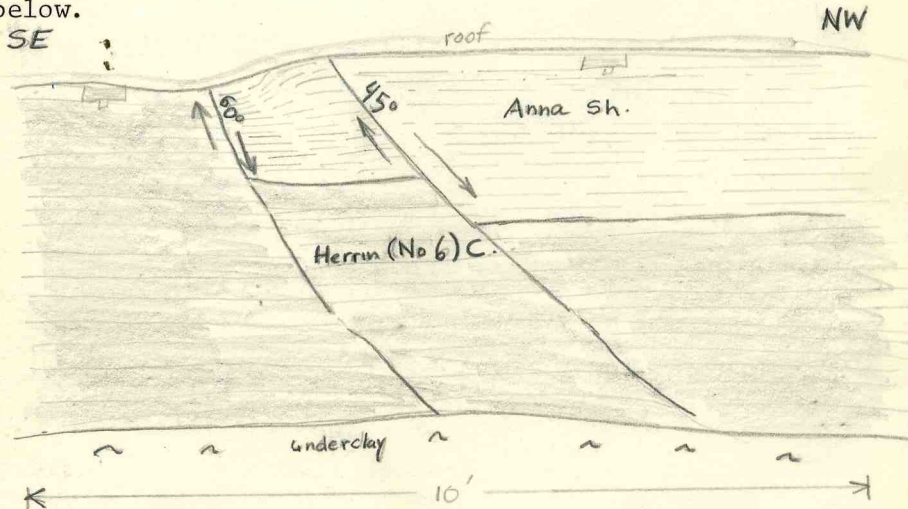 below.
SE
NW
roof
60°
45°
Anna Sh.
Herrin (No 6) C.
underclay
10'